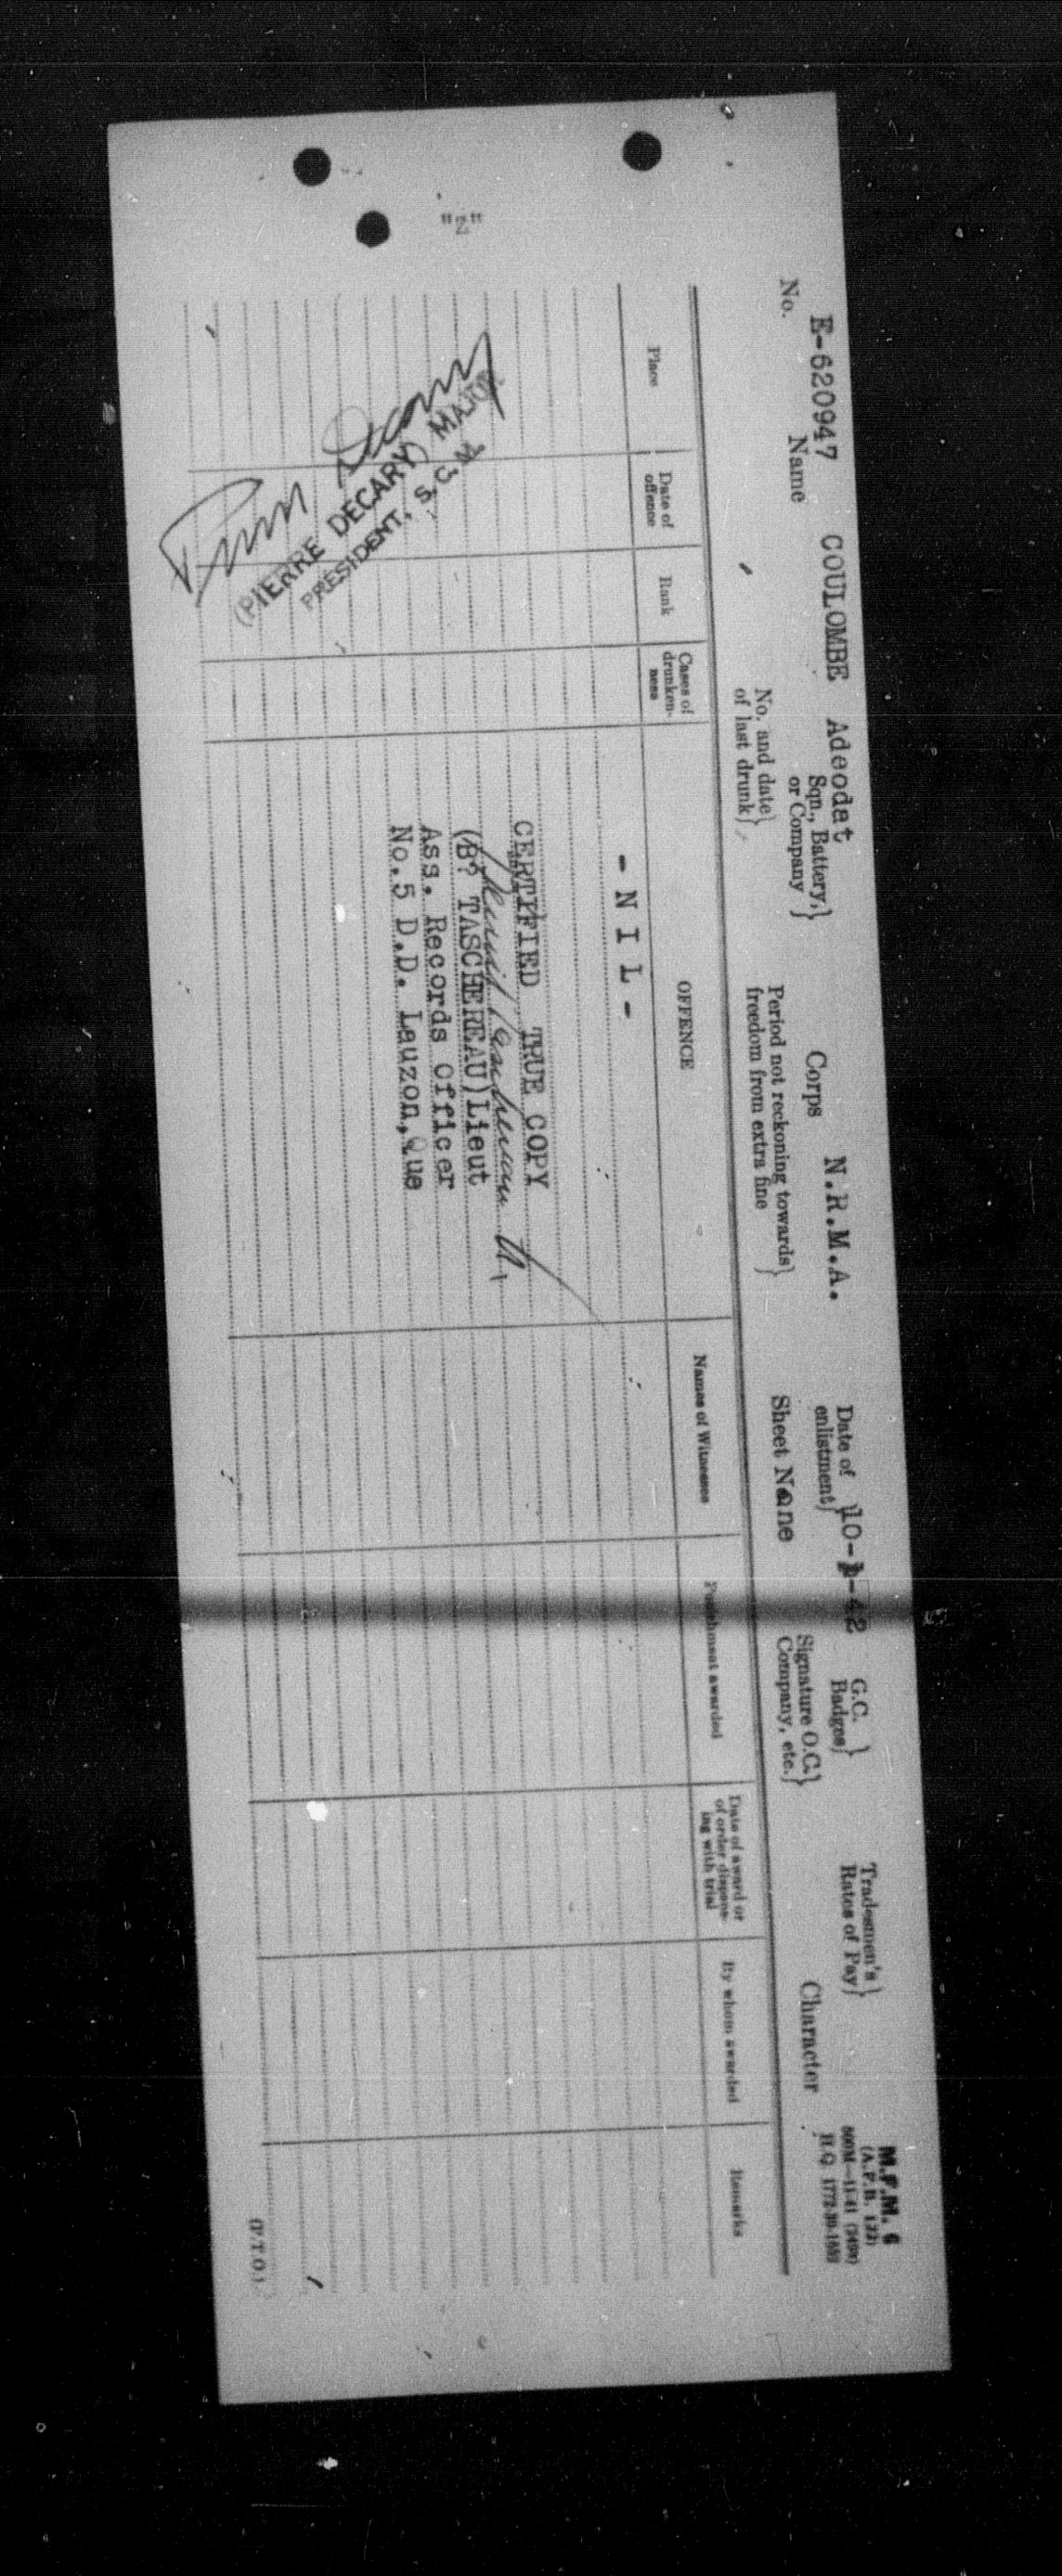 M.F.M. 6
(A.F.B. 122)
H.Q. 1772-39-
"Z"
No. E-620947 Name COULOMBE Adeodat Sqn., Battery, or Company Corps N.R.M.A. Date of enlistment 10- -42 G.C. Badges Tradesmen's Rates of Pay
No. and date of last drunk Period not reckoning towards freedom from extra fine Sheet None Signature O.C. Company, etc. Character
Place Date of offence Rank Cases of drunken-ness OFFENCE Names of Witnesses Punishment awarded Date of award or of order dispens-ing with trial By whom awarded Remarks
- N I L -
CERTIFIED TRUE COPY
(B? TASCHEREAU)Lieut
Ass. Records Officer
No.5 D.D. Lauzon, Que
Pierre Decary
(PIERRE DECARY) MAJOR
PRESIDENT, S.C.M.
(P.T.O.)